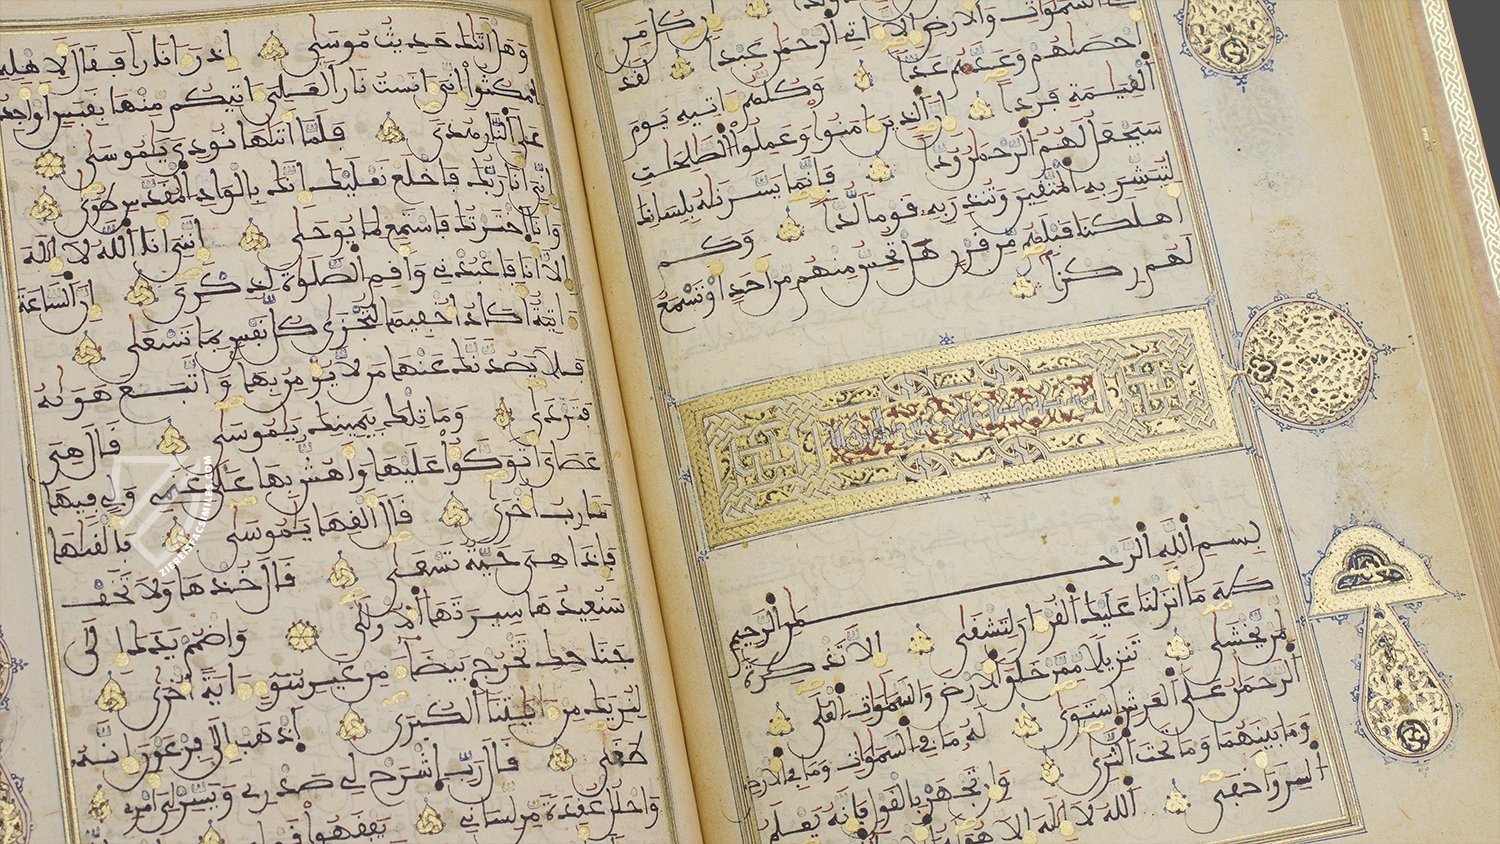 السموات والارض الا اتي الرحمن عبدا لقد
احصاهم وعدهم عدا وكلهم اتيه يوم
القيمة فردا ان الذين امنوا وعملوا الصلحت
سيجعل لهم الرحمن ودا فانما يسرنه بلسانك
لتبشر به المتقين وتنذر به قوما لدا وكم
اهلكنا قبلهم من قرن هل تحس منهم من احد او تسمع
لهم ركزا
بسم الله الرحمن الرحيم
طه ما انزلنا عليك القران لتشقى الا تذكرة
لمن يخشى تنزيلا ممن خلق الارض والسموات العلى
الرحمن على العرش استوى له ما في السموات وما في الارض
وما بينهما وما تحت الثرى وان تجهر بالقول فانه يعلم
السر واخفى الله لا اله الا هو
وهل اتيك حديث موسى اذ را نارا فقال لاهله
امكثوا اني انست نارا لعلي اتيكم منها بقبس او اجد
على النار هدى فلما اتيها نودي يموسى
اني انا ربك فاخلع نعليك انك بالواد المقدس طوى
وانا اخترتك فاستمع لما يوحى انني انا الله لا اله
الا انا فاعبدني واقم الصلوة لذكري ان الساعة
اتية اكاد اخفيها لتجزى كل نفس بما تسعى
فلا يصدنك عنها من لا يومن بها واتبع هويه
فتردى وما تلك بيمينك يموسى قال هي
عصاي اتوكوا عليها واهش بها على غنمي ولي فيها
مارب اخرى قال القها يموسى فالقيها
فاذا هي حية تسعى قال خذها ولا تخف
سنعيدها سيرتها الاولى واضمم يدك الى
جناحك تخرج بيضا من غير سو اية اخرى
لنريك من ايتنا الكبرى اذهب الى فرعون انه
طغى قال رب اشرح لي صدري ويسر لي امري
واحلل عقدة من لساني يفقهوا
ZIEREISFACSIMILES.COM